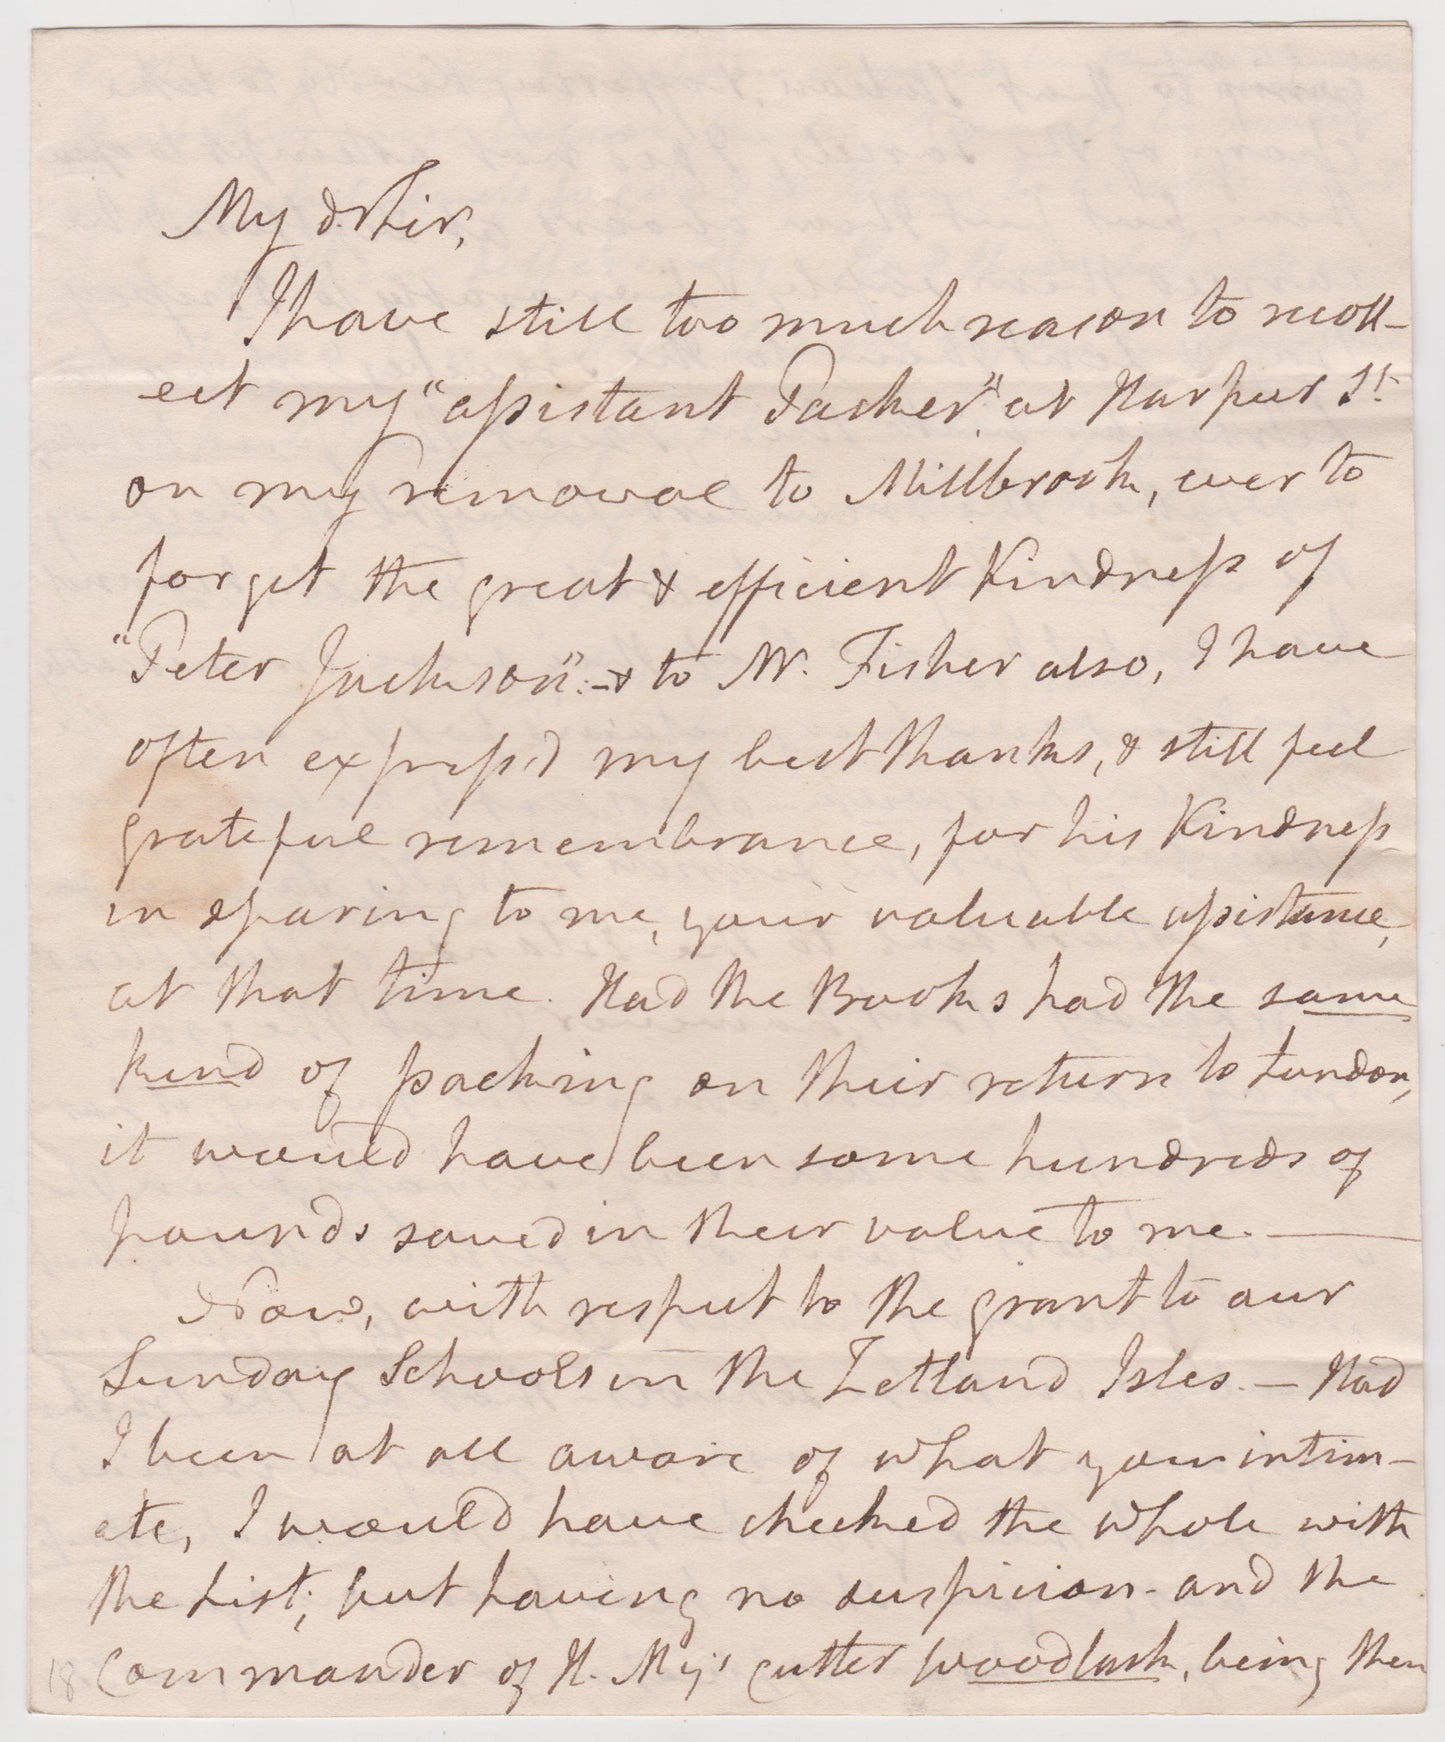 My dr Sir,
I have still too much reason to recoll-
ect my "assistant Packer" at Harpur St.
on my removal to Millbrook, ever to
forget the great & efficient Kindness of
"Peter Jackson":- & to Mr. Fisher also, I have
often express'd my best thanks, & still feel
grateful remembrance, for his Kindness
in sparing to me, your valuable assistance,
at that time. Had the Books had the same
kind of packing on their return to London,
it would have been some hundreds of
pounds saved in their value to me. —
Now, with respect to the grant to our
Sunday Schools in the Zetland Isles. — Had
I been at all aware of what you intim-
ate, I would have checked the whole with
the List; but having no suspicion - and the
Commander of H. My's Cutter Woodlark, being then
18